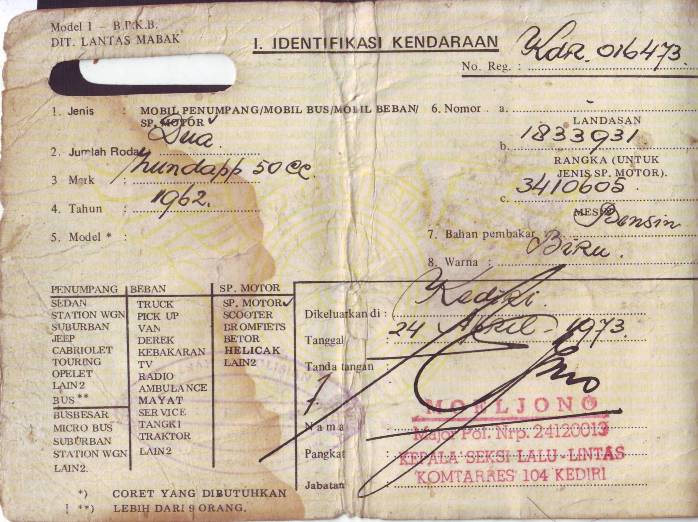 Model 1 — B.P.K.B.
DIT. LANTAS MABAK
I. IDENTIFIKASI KENDARAAN
No. Reg. : Kdr. 016473.
1. Jenis : MOBIL PENUMPANG/MOBIL BUS/MOBIL BEBAN/
SP. MOTOR
2. Jumlah Roda : Dua.
3 Merk : Zundapp 50 CC.
4. Tahun : 1962.
5. Model * :
6. Nomor . a.
LANDASAN
b. 1833931
RANGKA (UNTUK
JENIS SP. MOTOR).
c. 3410605.
MESIN
7. Bahan pembakar : Bensin
8. Warna : Biru.
PENUMPANG
SEDAN
STATION WGN
SUBURBAN
JEEP
CABRIOLET
TOURING
OPELET
LAIN2
BUS **
BUSBESAR
MICRO BUS
SUBURBAN
STATION WGN
LAIN2.
BEBAN
TRUCK
PICK UP
VAN
DEREK
KEBAKARAN
TV
RADIO
AMBULANCE
MAYAT
SERVICE
TANGKI
TRAKTOR
LAIN2
SP. MOTOR
SP. MOTOR
SCOOTER
BROMFIETS
BETOR
HELICAK
LAIN2
Dikeluarkan di : Kediri.
Tanggal : 24 April - 1973.
Tanda tangan :
Nama : MOELJONO
Pangkat : Major Pol. Nrp. 24120013
Jabatan : KEPALA SEKSI LALU-LINTAS
KOMTARRES 104 KEDIRI
*) CORET YANG DIBUTUHKAN
**) LEBIH DARI 9 ORANG.